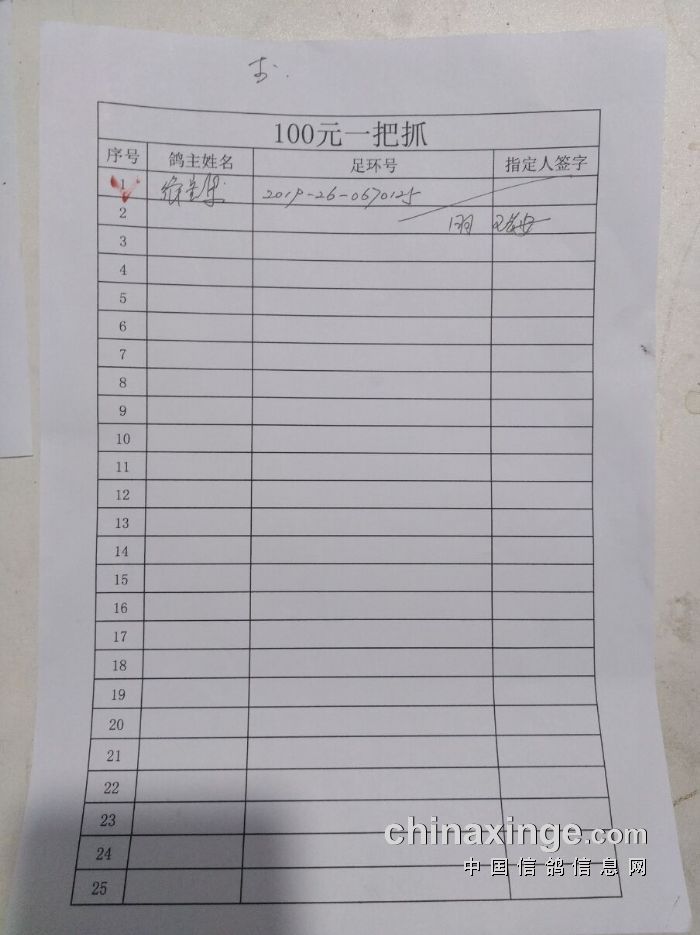 100元一把抓
序号 鸽主姓名 足环号 指定人签字
1 2019-26-0670125
2
3
4
5
6
7
8
9
10
11
12
13
14
15
16
17
18
19
20
21
22
23
24
25
chinaxinge.com
中国信鸽信息网